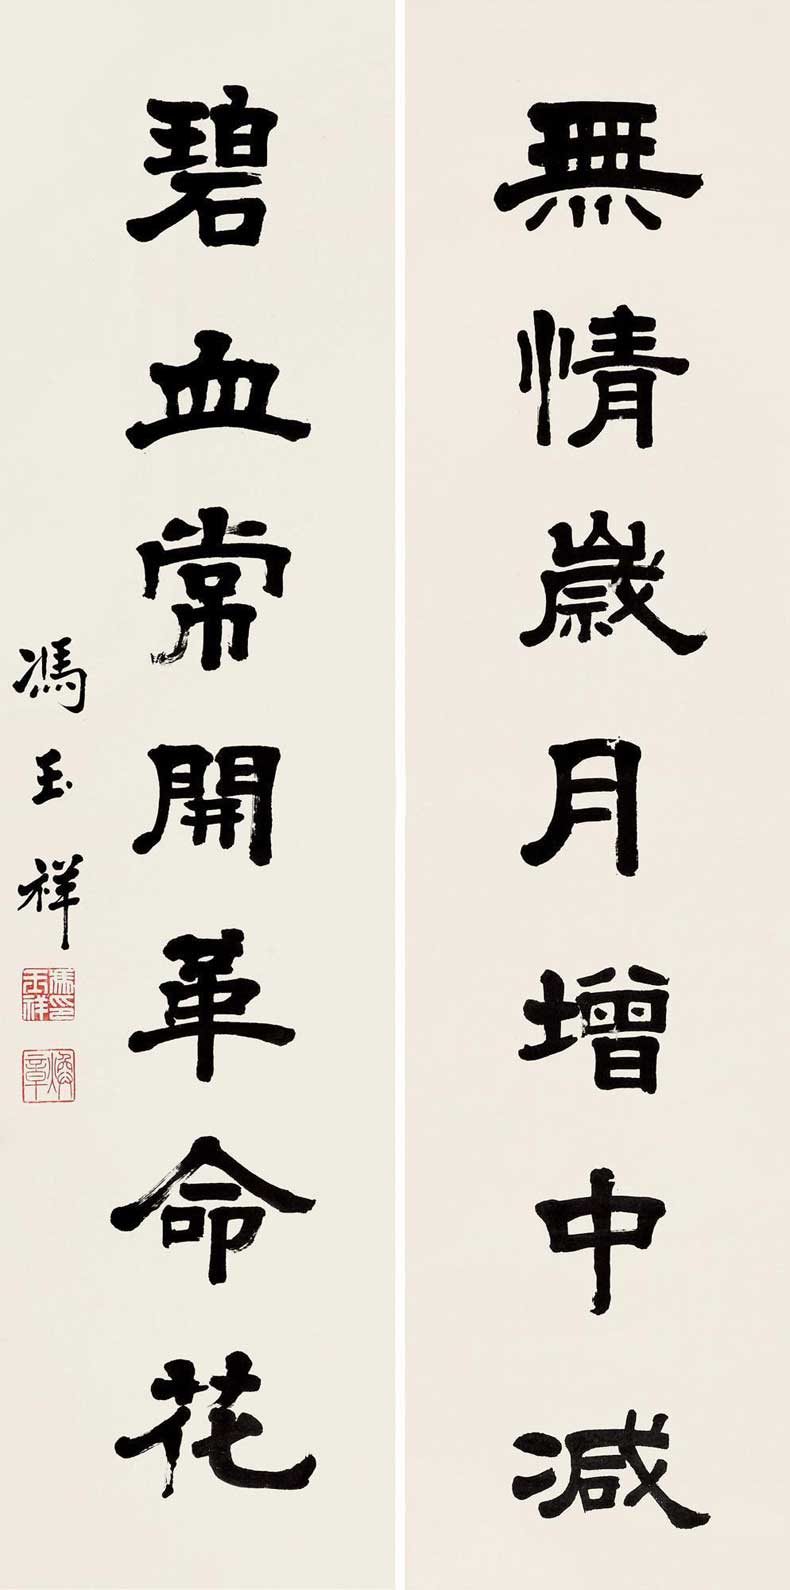 無情歲月增中減
碧血常開革命花
馮玉祥
馮玉祥印
煥章